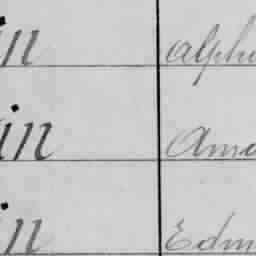 in alph
in Ama
in Edm